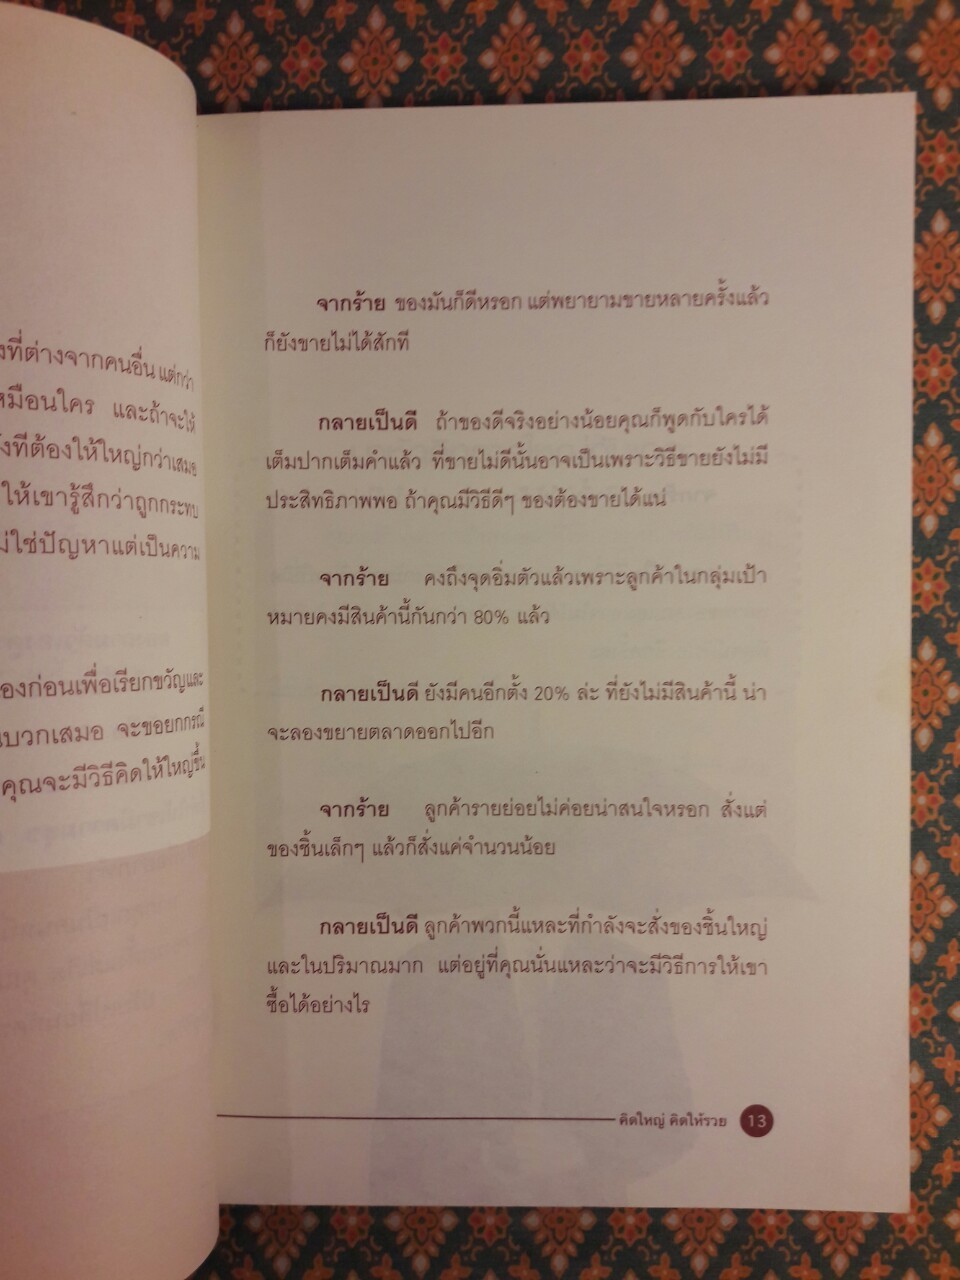 ที่ต่างจากคนอื่น แต่กว่า
หมือนใคร และถ้าจะให้
งทีต้องให้ใหญ่กว่าเสมอ
ให้เขารู้สึกว่าถูกกระทบ
ม่ใช่ปัญหาแต่เป็นความ
องก่อนเพื่อเรียกขวัญและ
บวกเสมอ จะขอยกกรณี
คุณจะมีวิธีคิดให้ใหญ่ขึ้น
จากร้าย ของมันก็ดีหรอก แต่พยายามขายหลายครั้งแล้ว
ก็ยังขายไม่ได้สักที
กลายเป็นดี ถ้าของดีจริงอย่างน้อยคุณก็พูดกับใครได้
เต็มปากเต็มคำแล้ว ที่ขายไม่ดีนั้นอาจเป็นเพราะวิธีขายยังไม่มี
ประสิทธิภาพพอ ถ้าคุณมีวิธีดีๆ ของต้องขายได้แน่
จากร้าย คงถึงจุดอิ่มตัวแล้วเพราะลูกค้าในกลุ่มเป้า
หมายคงมีสินค้านี้กันกว่า 80% แล้ว
กลายเป็นดี ยังมีคนอีกตั้ง 20% ล่ะ ที่ยังไม่มีสินค้านี้ น่า
จะลองขยายตลาดออกไปอีก
จากร้าย ลูกค้ารายย่อยไม่ค่อยน่าสนใจหรอก สั่งแต่
ของชิ้นเล็กๆ แล้วก็สั่งแค่จำนวนน้อย
กลายเป็นดี ลูกค้าพวกนี้แหละที่กำลังจะสั่งของชิ้นใหญ่
และในปริมาณมาก แต่อยู่ที่คุณนั่นแหละว่าจะมีวิธีการให้เขา
ซื้อได้อย่างไร
คิดใหญ่ คิดให้รวย 13